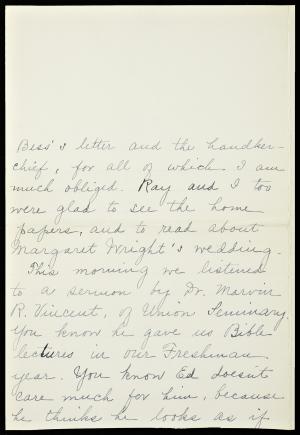 Bess's letter and the handker-
chief, for all of which I am
much obliged. Ray and I too
were glad to see the home
papers, and to read about
Margaret Wright's wedding.
This morning we listened
to a sermon by Dr. Marvin
R. Vincent, of Union Seminary.
You know he gave us Bible
lectures in our Freshman
year. You know Ed doesn't
care much for him, because
he thinks he looks as if